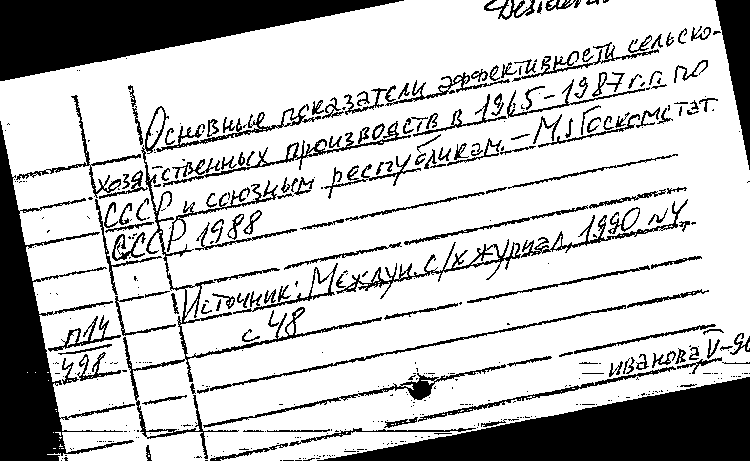 Desidera
Основные показатели эффективности сельско-
хозяйственных производств в 1965-1987 г.г. по
СССР и союзным республикам. – М.: Госкомстат
СССР, 1988
Источник: Междун. с/х журнал, 1990, №4,
с 48
п14
498
иванова, V-90